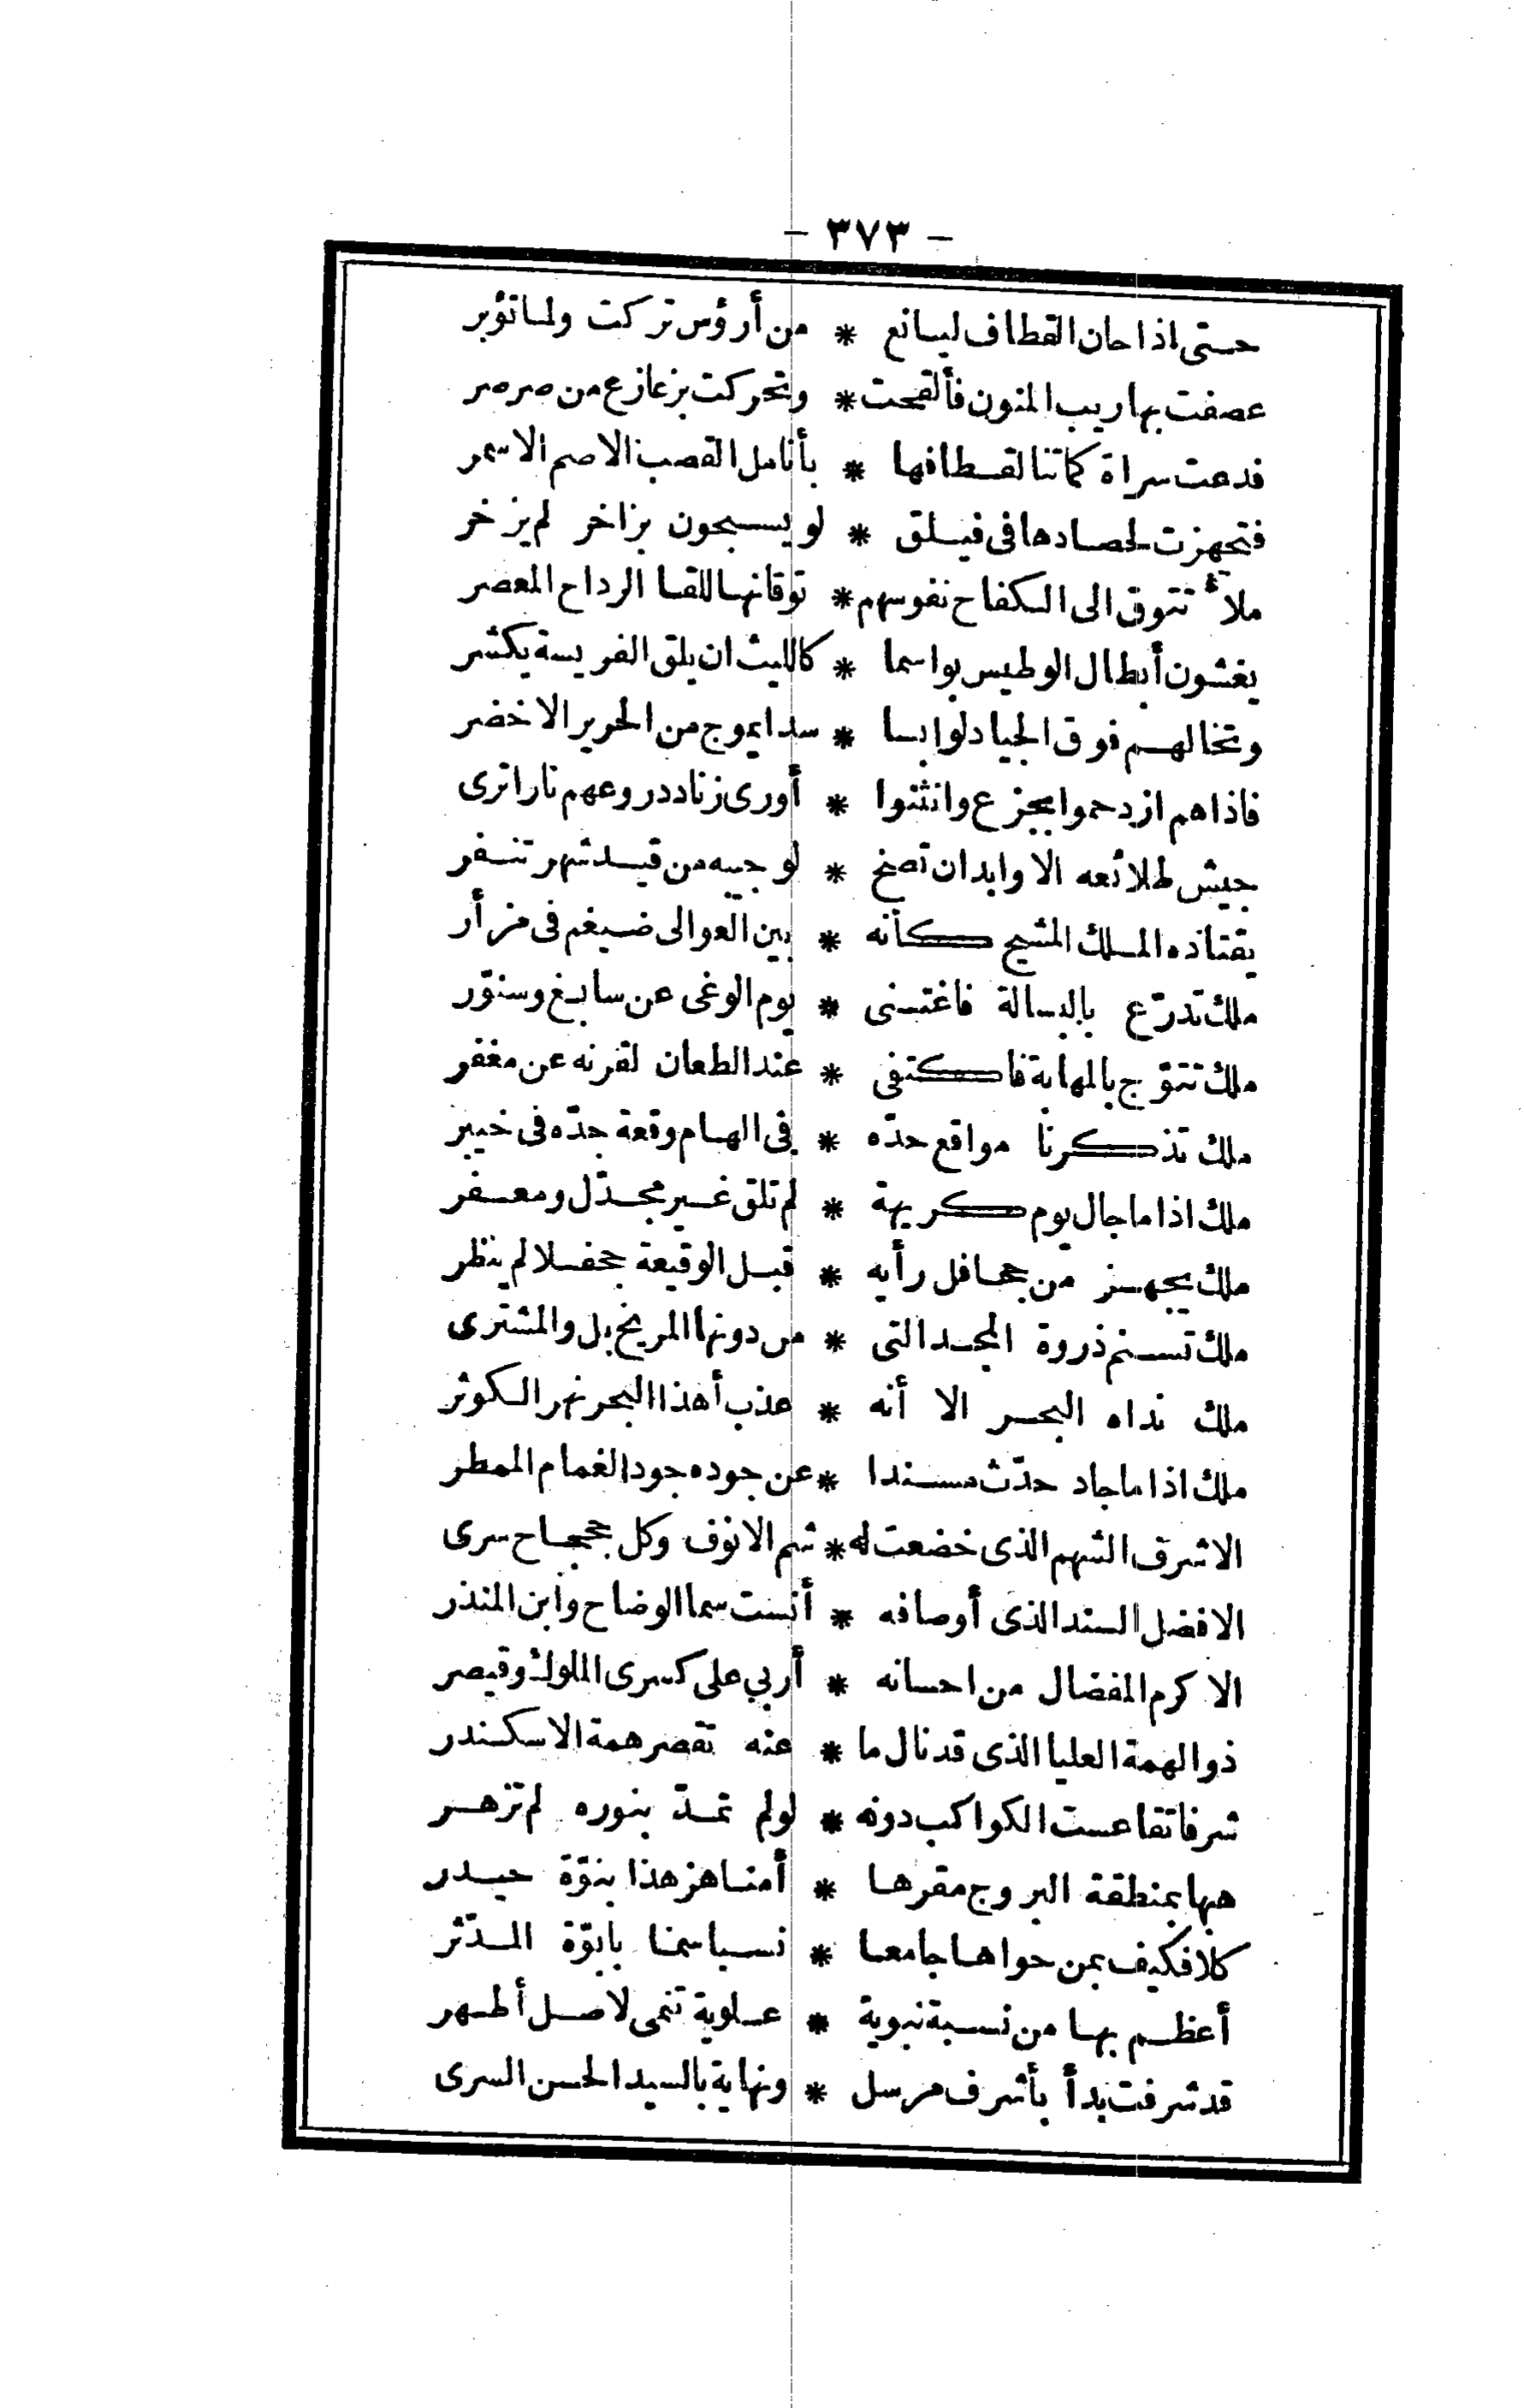 - ٣٧٣ -
حتى اذا حان القطاف ليانع * من أرؤس تركت ولما تؤبر
عصفت بها ريب المنون فألقحت * وتحركت بزعازع من صرصر
فدعت سراة كماتنا لقطافها * بأنامل القصب الاصم الاسمر
فتجهزت لحصادها فى فيلق * لو يسبحون بزاخر لم يزخر
ملأ تتوق الى الكفاح نفوسهم * توقانها للقا الرداح المعصر
يغشون أبطال الوطيس بواسما * كالليث ان يلق الفريسة يكشر
وتخالهم فوق الجياد لوابسا * سدا يموج من الحرير الاخضر
فاذا هم ازدحموا بجزع وانثنوا * أورى زناد دروعهم نارا ترى
جيش طلائعه الاوابد ان تصخ * لوجيبه من قيد شهر تنفر
يقتاده الملك المشيح كأنه * بين العوالى ضيغم فى مزأر
ملك تدرّع بالبسالة فاغتنى * يوم الوغى عن سابغ وسنوّر
ملك تتوّج بالمهابة فاكتفى * عند الطعان لقرنه عن مغفر
ملك تذكرنا مواقع حدّه * فى الهام وقعة جدّه فى خيبر
ملك اذا ما جال يوم كريهة * لم تلق غير مجدّل ومعفر
ملك يجهز من جحافل رأيه * قبل الوقيعة جحفلا لم ينظر
ملك تسنم ذروة المجد التى * من دونها المريخ بل والمشترى
ملك نداه البحر الا أنه * عذب أهذا البحر نهر الكوثر
ملك اذا ما جاد حدّث مسندا * عن جوده جود الغمام الممطر
الاشرف الشهم الذى خضعت له * شم الانوف وكل جحجاح سرى
الافضل السند الذى أوصافه * أنست سما الوضاح وابن المنذر
الاكرم المفضال من احسانه * أربي على كسرى الملوك وقيصر
ذو الهمة العليا الذى قد نال ما * عنه تقصر همة الاسكندر
شرفا تقاعست الكواكب دونه * لو لم تمدّ بنوره لم تزهر
هبها بمنطقة البروج مقرها * أمناهز هذا بنوّة حيدر
كلا فكيف بمن حواها جامعا * نسبا سمنا بابوّة المدّثر
أعظم بها من نسبة نبوية * علوية تنمى لاصل أطهر
قد شرفت بدأ بأشرف مرسل * ونهاية بالسيد الحسن السرى